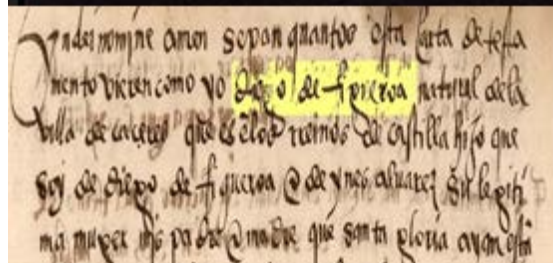 yn dei nomine amen sepan quantos esta carta de testa
mento vieren como yo diego de figueroa natural de la
villa de caçeres que es en los rreinos de castilla hijo que
soy de diego de figueroa e de ynes alvarez su legiti
ma muger mis padre e madre que santa gloria ayan est